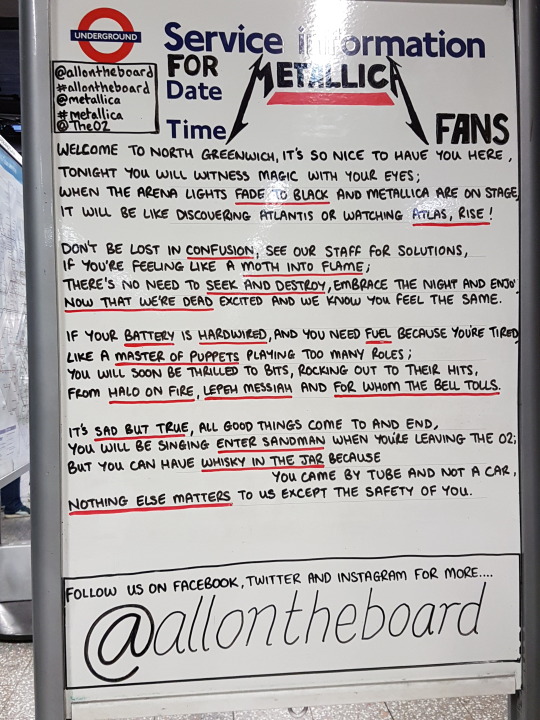 UNDERGROUND
Service information
FOR METALLICA
Date
Time
FANS
@allontheboard
#allontheboard
@metallica
#metallica
@TheO2
WELCOME TO NORTH GREENWICH, IT'S SO NICE TO HAVE YOU HERE,
TONIGHT YOU WILL WITNESS MAGIC WITH YOUR EYES;
WHEN THE ARENA LIGHTS FADE TO BLACK AND METALLICA ARE ON STAGE,
IT WILL BE LIKE DISCOVERING ATLANTIS OR WATCHING ATLAS, RISE!
DON'T BE LOST IN CONFUSION, SEE OUR STAFF FOR SOLUTIONS,
IF YOU'RE FEELING LIKE A MOTH INTO FLAME;
THERE'S NO NEED TO SEEK AND DESTROY, EMBRACE THE NIGHT AND ENJOY
NOW THAT WE'RE DEAD EXCITED AND WE KNOW YOU FEEL THE SAME.
IF YOUR BATTERY IS HARDWIRED, AND YOU NEED FUEL BECAUSE YOU'RE TIRED
LIKE A MASTER OF PUPPETS PLAYING TOO MANY ROLES;
YOU WILL SOON BE THRILLED TO BITS, ROCKING OUT TO THEIR HITS,
FROM HALO ON FIRE, LEPEH MESSIAH AND FOR WHOM THE BELL TOLLS.
IT'S SAD BUT TRUE, ALL GOOD THINGS COME TO AND END,
YOU WILL BE SINGING ENTER SANDMAN WHEN YOU'RE LEAVING THE O2;
BUT YOU CAN HAVE WHISKY IN THE JAR BECAUSE
YOU CAME BY TUBE AND NOT A CAR,
NOTHING ELSE MATTERS TO US EXCEPT THE SAFETY OF YOU.
FOLLOW US ON FACEBOOK, TWITTER AND INSTAGRAM FOR MORE....
@allontheboard